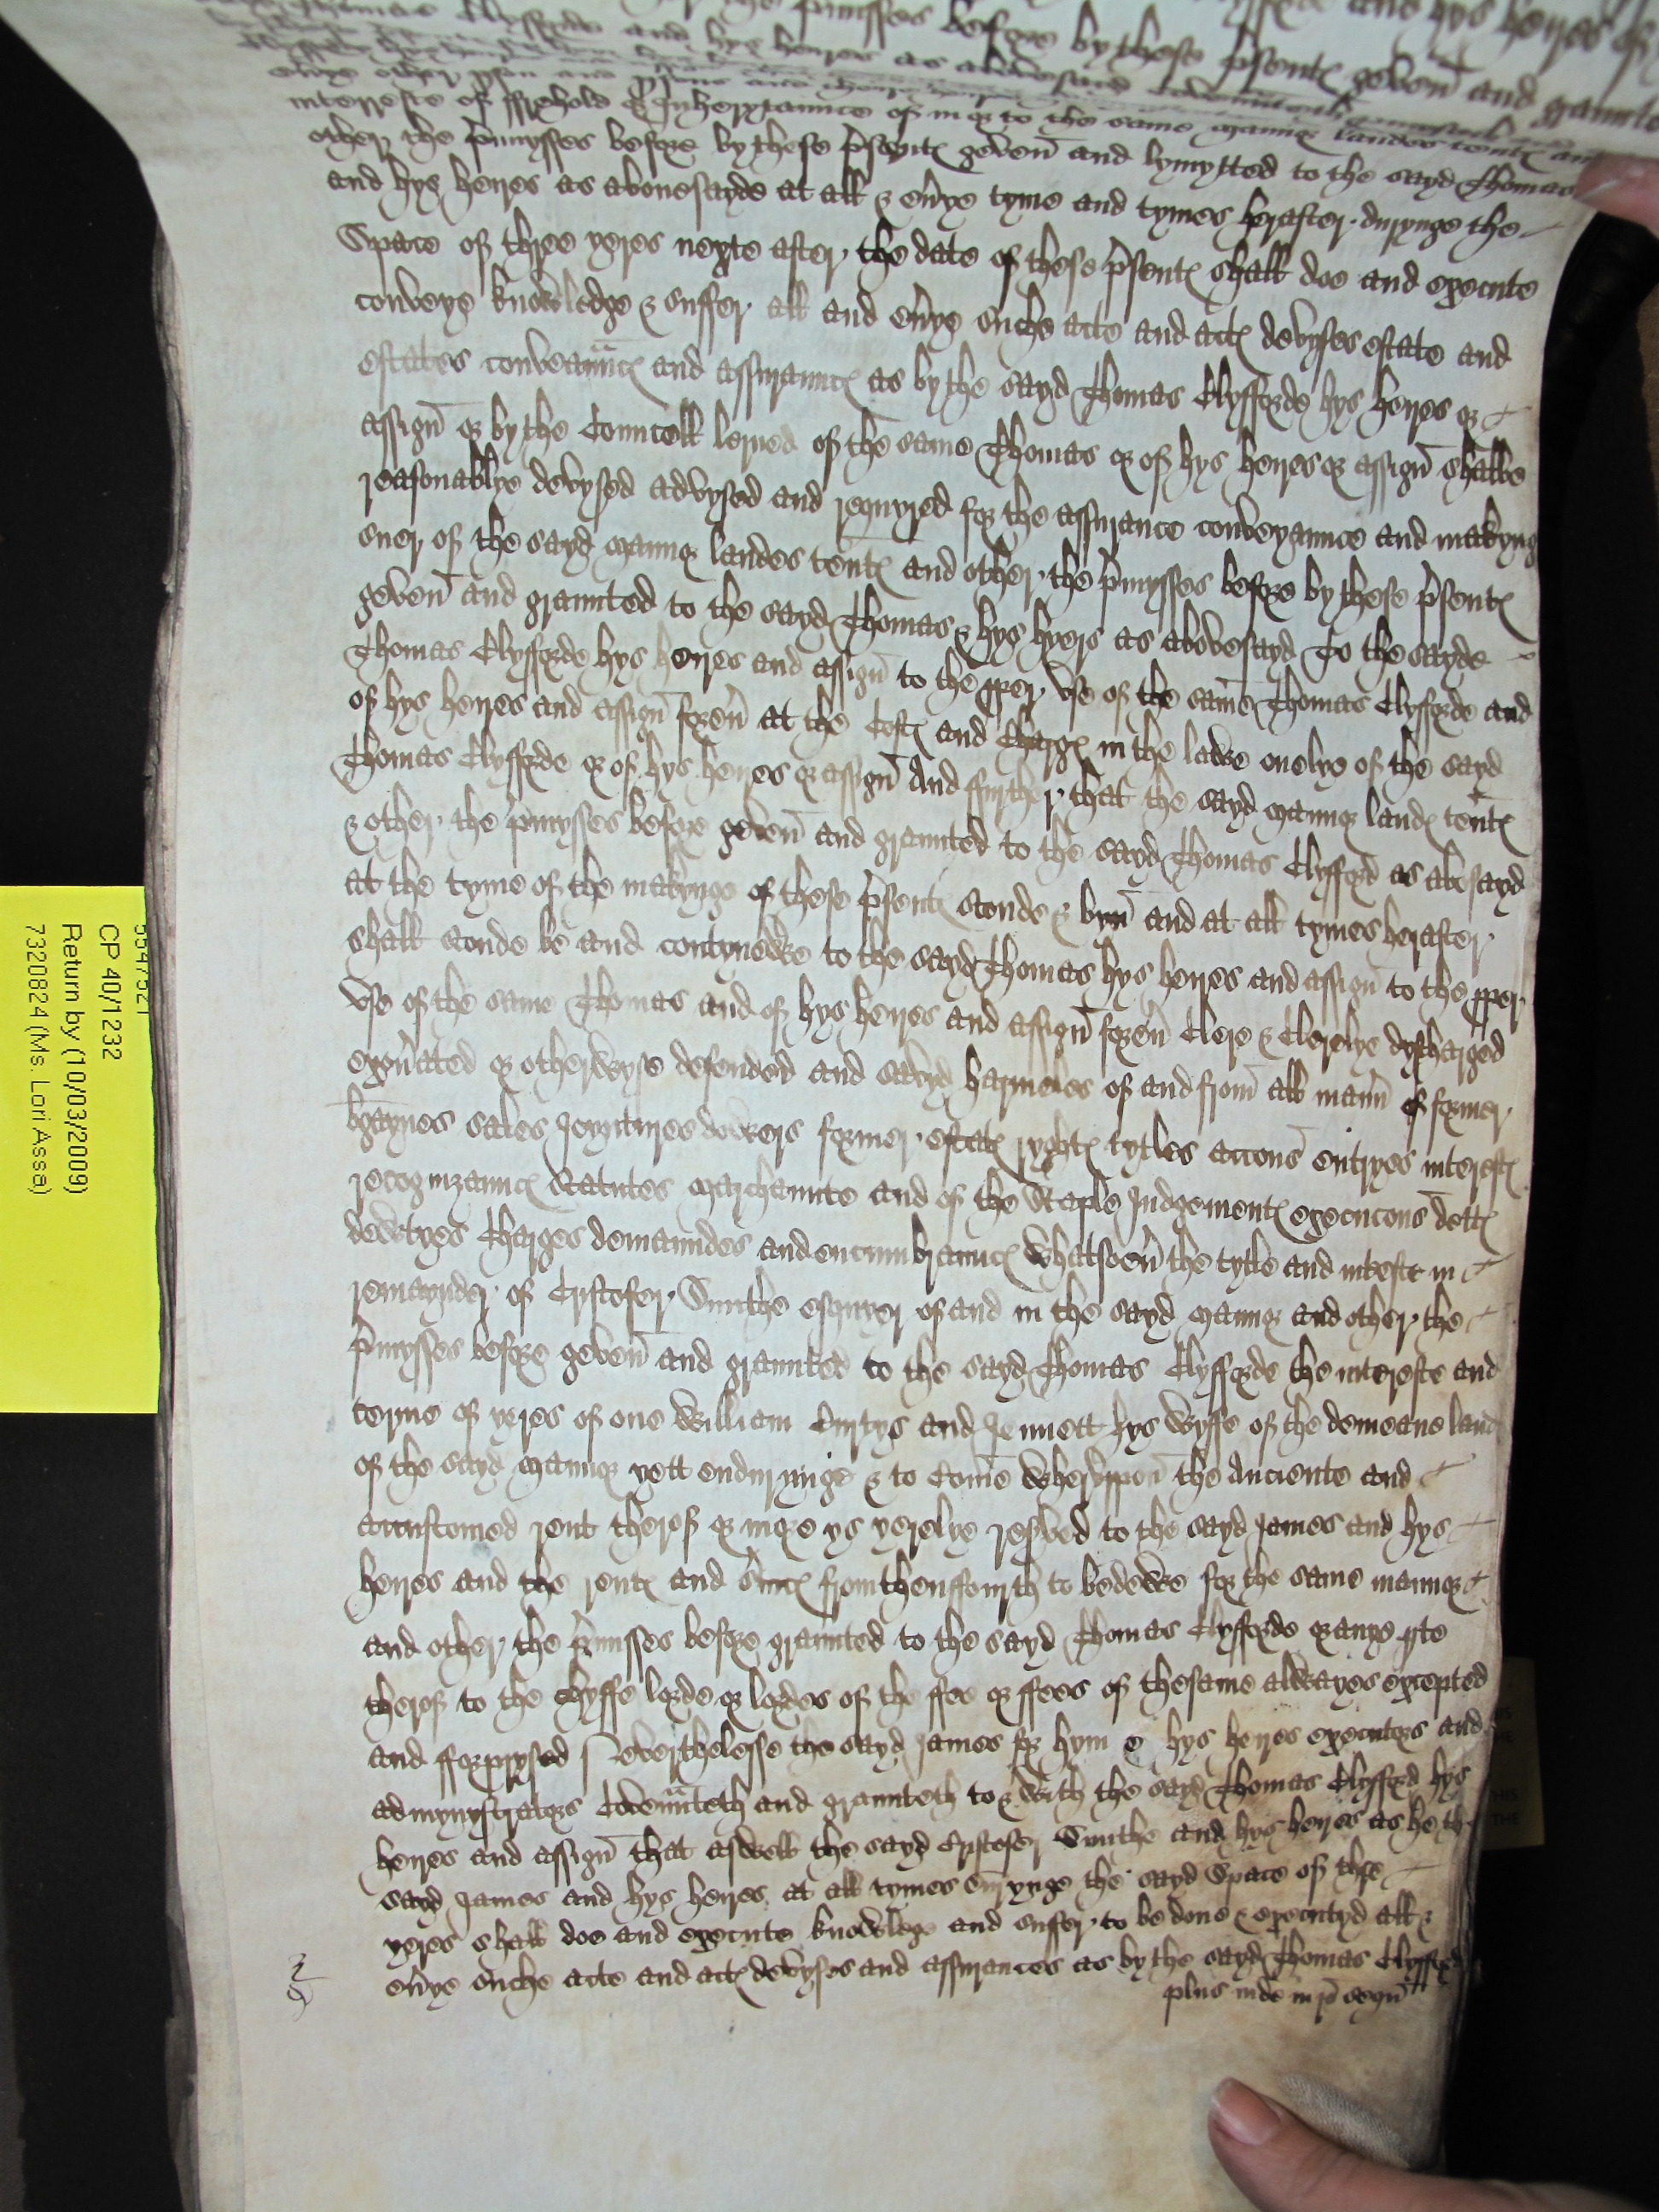 the pmisses before by these psentes geven and graunted
Thomas Clyfforde and hys heyres as abovesayd
interreste of ffrehold & Inherytaunce of in or to the same mannor landes tentes and
other the pmysses before by these psentes geven and lymytted to the sayd Thomas
and hys heyres as abovesayde at all & evye tyme and tymes herafter durynge the
Space of three yeres nexte after the date of these psentes shall doe and execute
conveye knowledge & suffer all and evye suche acte and actes devyses estate and
estates conveaunces and assuraunces as by the sayd Thomas Clyfforde hys heyres or
assign or by the Councell lerned of the same Thomas or of hys heyres or assign shalbe
reasonablye devysed advysed and requyred for the assurance conveyaunce and makyng
suer of the sayd mannor landes tentes and other the pmysses before by these psentes
geven and graunted to the sayd Thomas & hys hyers as abovesayd To the sayde
Thomas Clyfforde hys heyres and assign to the pper use of the same Thomas Clyfforde and
of hys heyres and assign forev at the Costes and Charges in the lawe onelye of the sayd
Thomas Clyfforde or of hys heyres or assign And further that the sayd mannor landes tentes
& other the pmysses before geven and graunted to the sayd Thomas Clyfford as abovesayd
at the tyme of the makynge of these psentes stonde & byn and at all tymes herafter
shall stonde be and contynewe to the sayd Thomas hys heyres and assign to the pper
use of the same Thomas and of hys heyres and assign forev Clere & Clerelye dyscharged
exonated or otherwyse defended and savyd harmeles of and from all mann of former
bgaynes sales Joyntures dowers former estates ryghtes tytles accons entryes interestes
recognizaunces Statutes marchaunte and of the Staple Judgementes execucons dettes
dewtyes Charges demaundes and encumbraunces whatsoev the tytle and intereste in
remaynder of Cristofer Smithe esquyer of and in the sayd mannor and other the
pmysses before geven and graunted to the sayd Thomas Clyfforde the intereste and
terme of yeres of one William Curtys and Jennett hys wyffe of the demeane land
of the sayd mannor yett endurynge & to Come wheruppon the Anciente and
accustomed rent therof or more ys yerelye resved to the sayd James and hys
heyres and the rentes and svices from thensfourth to be dewe for the same mannor
and other the pmisses before graunted to the sayd Thomas Clyfforde or anye pte
therof to the chyffe lorde or lordes of the ffee or ffees of thesame alwayes excepted
and fforprysed Neverthelesse the sayd James for hym & hys heyres executors and
admynystrators Covenaunteth and graunteth to & with the sayd Thomas Clyfford hys
heyres and assign that aswell the sayd Cristofer Smithe and hys heyres as he the
sayd James and hys heyres at all tymes durynge the sayd Space of thre
yeres shall doe and execute knowlege and suffer to be done & executyd all &
evye suche acte and actes devyses and assurances as by the sayd Thomas Clyfford
plus inde in ro sequn
CP 40/1232
Return by (10/03/2009)
7320824 (Ms. Lori Assa)